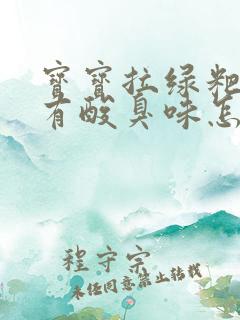 宝宝拉绿粑
有酸臭味怎
程守宗
未经同意禁止转载